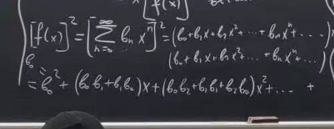 [f(x)]
[f(x)]² = [∑_{n=0}^{∞} b_n x^n]² = (b_0 + b_1 x + b_2 x² + ... + b_n x^n + ...)
(b_0 + b_1 x + b_2 x² + ... + b_n x^n + ...)
= b_0² + (b_0 b_1 + b_1 b_0) x + (b_0 b_2 + b_1 b_1 + b_2 b_0) x² + ... +